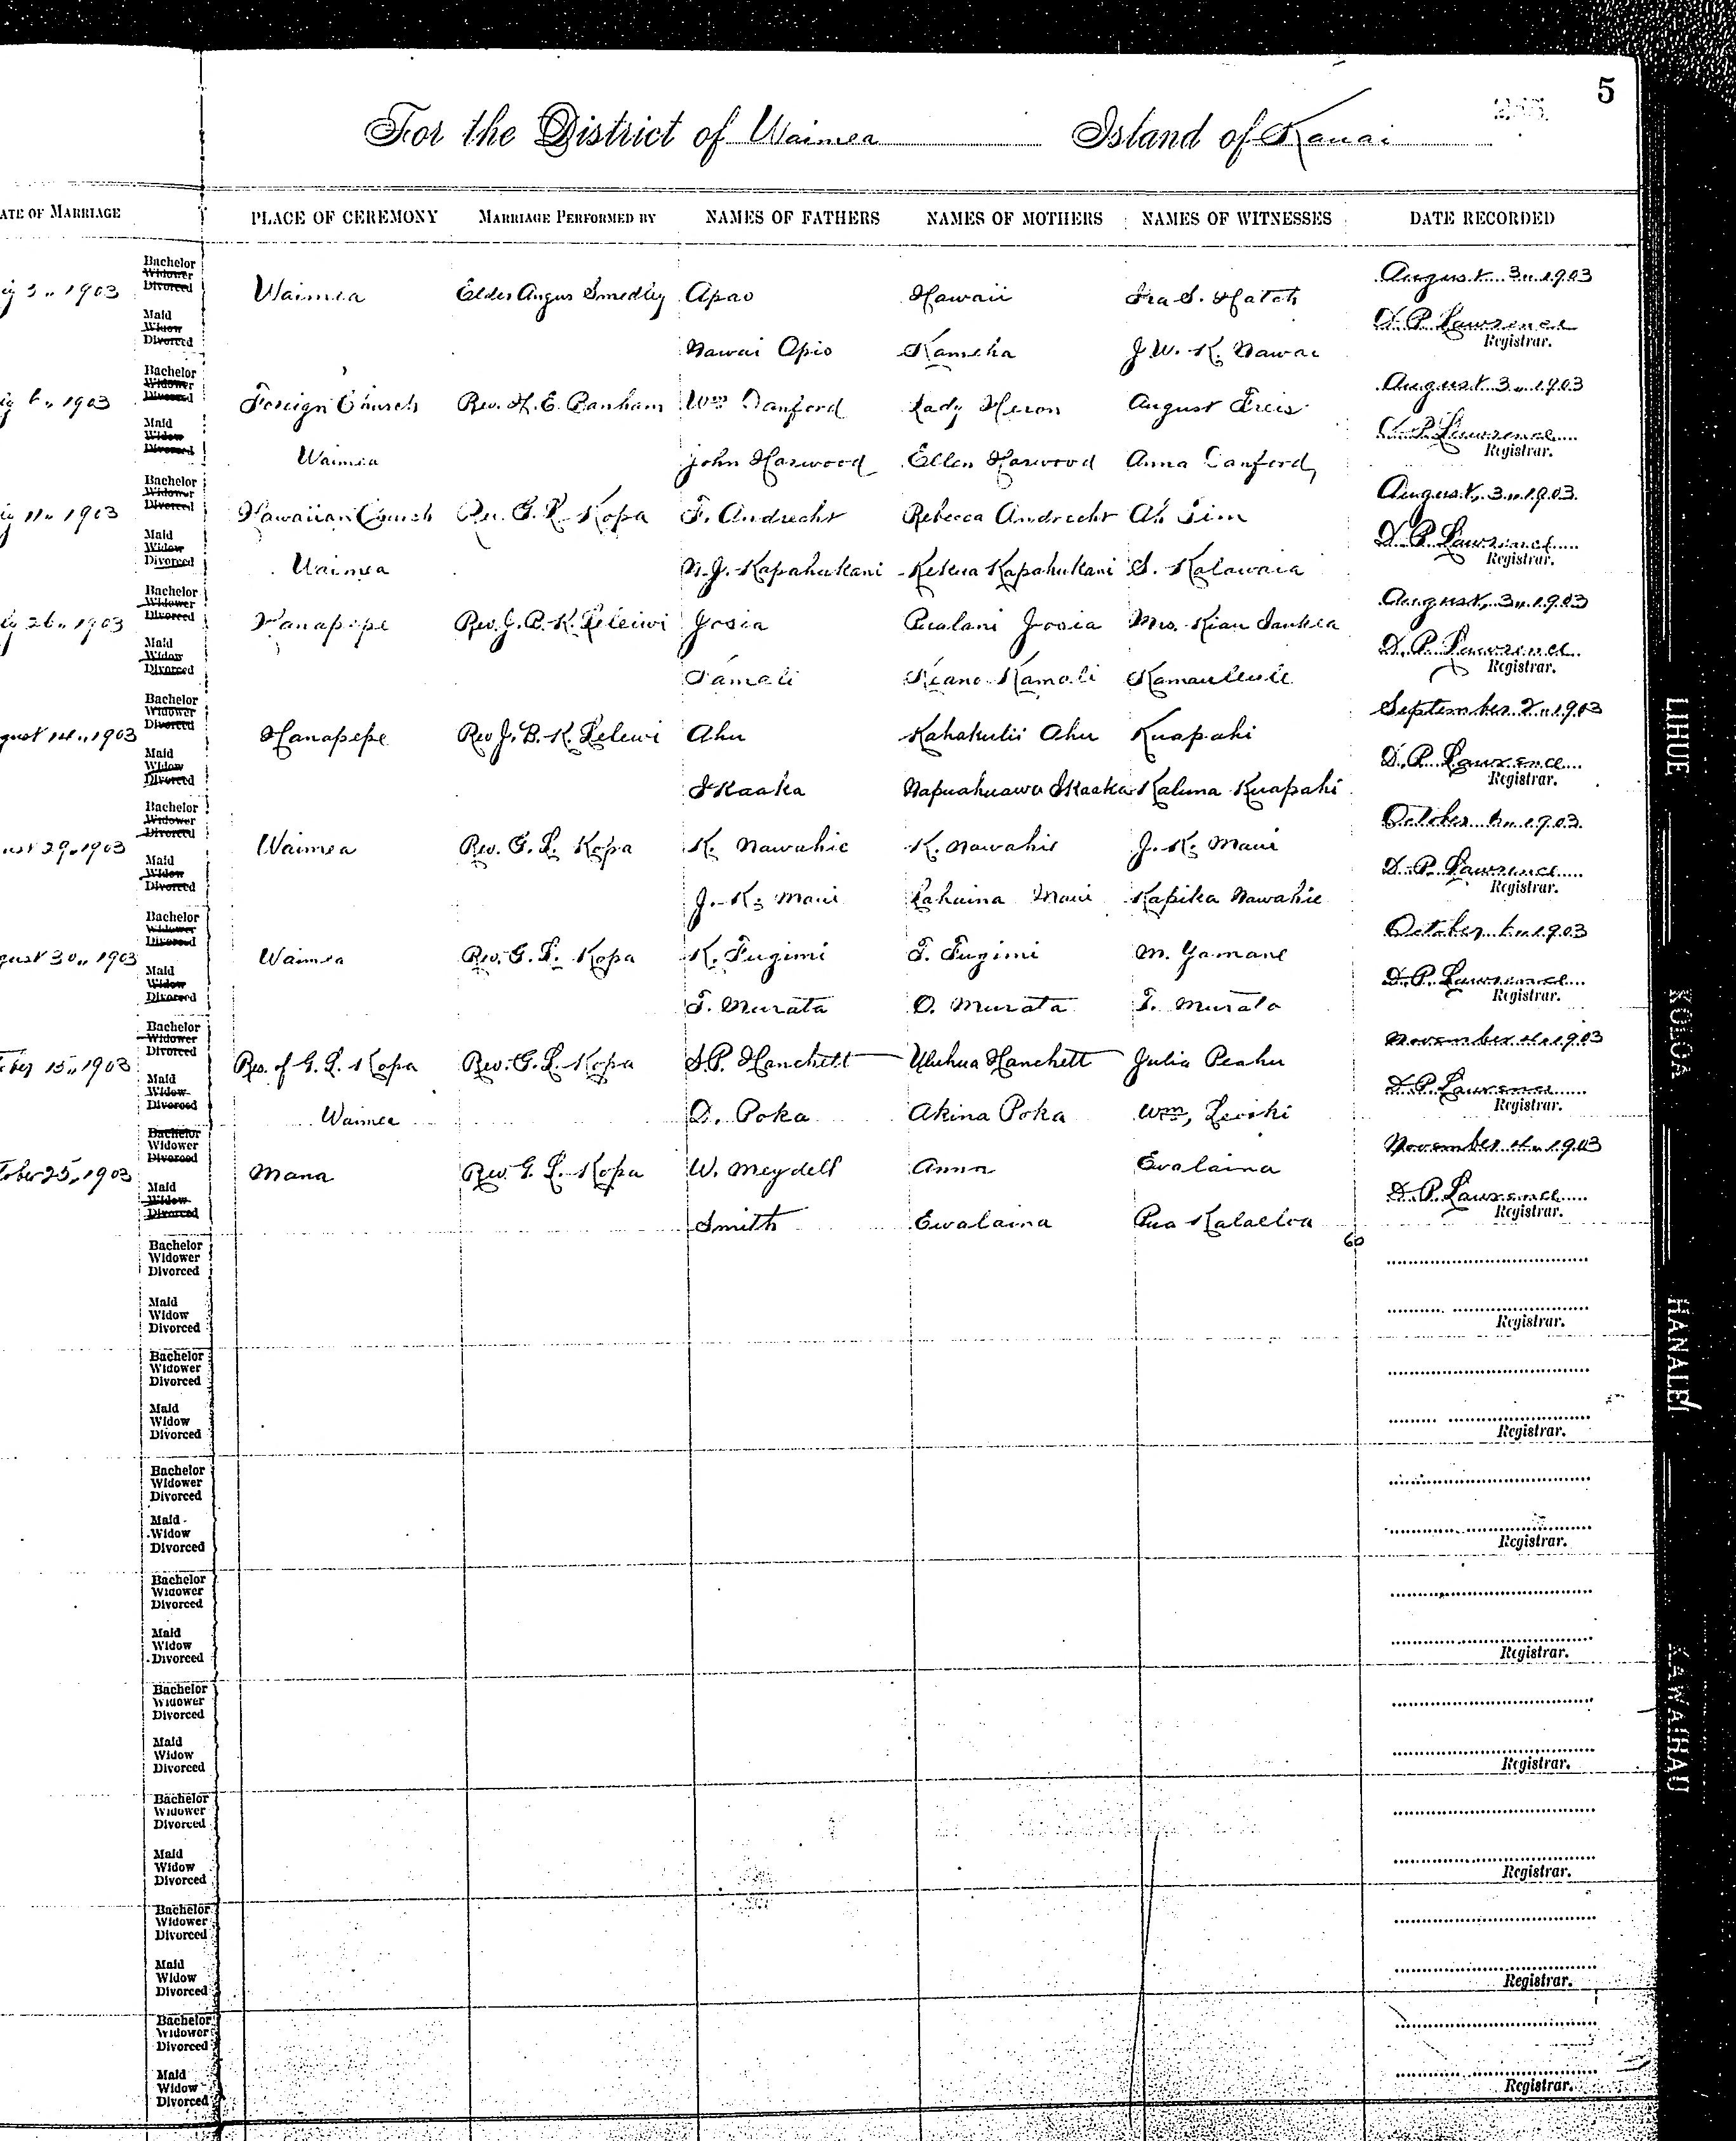 5
For the District of Waimea Island of Kauai
ATE OF MARRIAGE PLACE OF CEREMONY MARRIAGE PERFORMED BY NAMES OF FATHERS NAMES OF MOTHERS NAMES OF WITNESSES DATE RECORDED
Bachelor
Widower
Divorced
3" 1903 Waimea Elder Angus Smedley Apao Hawaii Ira S. Hatch August 3" 1903
Maid
Widow
Divorced
Nawai Opio Kameha J. W. K. Nawai D. P. Lawrence
Registrar.
Bachelor
Widower
Divorced
6" 1903 Foreign Church Rev. H. E. Banham Wm Danford Lady Heron August Dreis August 3" 1903
Maid
Widow
Divorced
Waimea John Harwood Ellen Harwood Anna Danford D. P. Lawrence
Registrar.
Bachelor
Widower
Divorced
11" 1903 Hawaiian Church Rev. G. L. Kopa F. Andrecht Rebecca Andrecht Ah Sim August 3" 1903
Maid
Widow
Divorced
Waimea N. J. Kapahukani Kekua Kapahukani S. Kalawaia D. P. Lawrence
Registrar.
Bachelor
Widower
Divorced
26" 1903 Hanapepe Rev. J. B. K. Leleiwi Josia Pualani Josia Mrs. Kian August 3" 1903
Maid
Widow
Divorced
Kamali Keano Kamali Kamauleule D. P. Lawrence
Registrar.
Bachelor
Widower
Divorced
gust 14" 1903 Hanapepe Rev J. B. K. Lelewi Ahu Kahakulii Ahu Kuapahi September 2" 1903
Maid
Widow
Divorced
IKaaka Napuahuawa IKaaka Kaluna Kuapahi D. P. Lawrence
Registrar.
Bachelor
Widower
Divorced
ust 29" 1903 Waimea Rev. G. L. Kopa K. Nawahie K. Nawahie J. K. Maui October 6" 1903
Maid
Widow
Divorced
J. K. Maui Lahaina Maui Kapika Nawahie D. P. Lawrence
Registrar.
Bachelor
Widower
Divorced
gust 30" 1903 Waimea Rev. G. L. Kopa K. Fugimi T. Fugimi M. Yamane October 6" 1903
Maid
Widow
Divorced
T. Murata O. Murata T. Murata D. P. Lawrence
Registrar.
Bachelor
Widower
Divorced
ber 15" 1903 Res. of G. L. Kopa Rev. G. L. Kopa S. P. Hanchett Uluhua Hanchett Julia Peahu November 4" 1903
Maid
Widow
Divorced
Waimea D. Poka Akina Poka Wm, Leoiki D. P. Lawrence
Registrar.
Bachelor
Widower
Divorced
tober 25" 1903 Mana Rev. G. L. Kopa W. Meydell Anna Evalaina November 4" 1903
Maid
Widow
Divorced
Smith Ewalaina Pua Kalaeloa D. P. Lawrence
Registrar.
60
Bachelor
Widower
Divorced
Maid
Widow
Divorced
Registrar.
Bachelor
Widower
Divorced
Maid
Widow
Divorced
Registrar.
Bachelor
Widower
Divorced
Maid
Widow
Divorced
Registrar.
Bachelor
Widower
Divorced
Maid
Widow
Divorced
Registrar.
Bachelor
Widower
Divorced
Maid
Widow
Divorced
Registrar.
Bachelor
Widower
Divorced
Maid
Widow
Divorced
Registrar.
Bachelor
Widower
Divorced
Maid
Widow
Divorced
Registrar.
Bachelor
Widower
Divorced
Maid
Widow
Divorced
Registrar.
LIHUE
KOLOA
HANALEI
KAWAIHAU